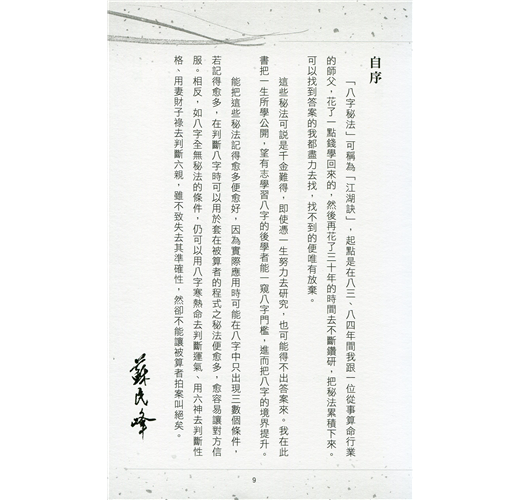 自序
「八字秘法」可稱為「江湖訣」，起點是在八三、八四年間我跟一位從事算命行業
的師父，花了一點錢學回來的，然後再花了三十年的時間去不斷鑽研，把秘法累積下來。
可以找到答案的我都盡力去找，找不到的便唯有放棄。
這些秘法可說是千金難得，即使憑一生努力去研究，也可能得不出答案來。我在此
書把一生所學公開，望有志學習八字的後學者能一窺八字門檻，進而把八字的境界提升。
能把這些秘法記得愈多便愈好，因為實際應用時可能在八字中只出現三數個條件，
若記得愈多，在判斷八字時可以用於套在被算者的程式之秘法便愈多，愈容易讓對方信
服。相反，如八字全無秘法的條件，仍可以用八字寒熱命去判斷運氣、用六神去判斷性
格、用妻財子祿去判斷六親，雖不致失去其準確性，然卻不能讓被算者拍案叫絕矣。
蘇民峰
9